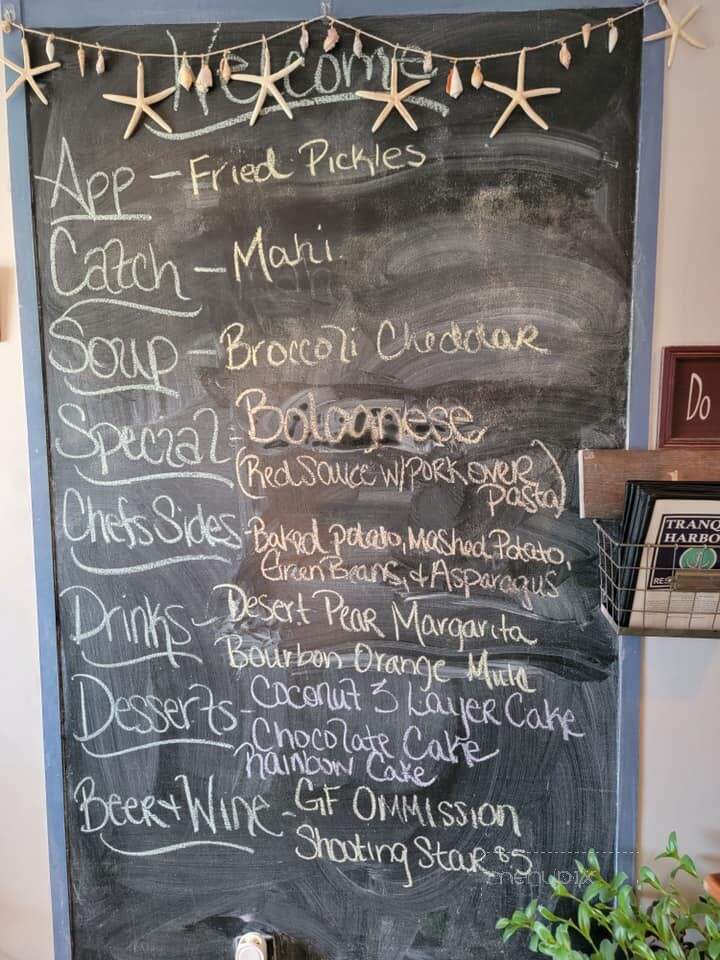 Welcome
App - Fried Pickles
Catch - Mahi
Soup - Broccoli Cheddar
Special - Bolognese
(Red Sauce w/ Pork over
Pasta)
Chefs Sides - Baked Potato, Mashed Potato,
Green Beans, + Asparagus
Drinks - Desert Pear Margarita
Bourbon Orange Mule
Desserts - Coconut 3 Layer Cake
Chocolate Cake
Rainbow Cake
Beer + Wine - GF OMMISSION
Shooting Star $5
Do
TRANQ
HARBO
RES
menupix